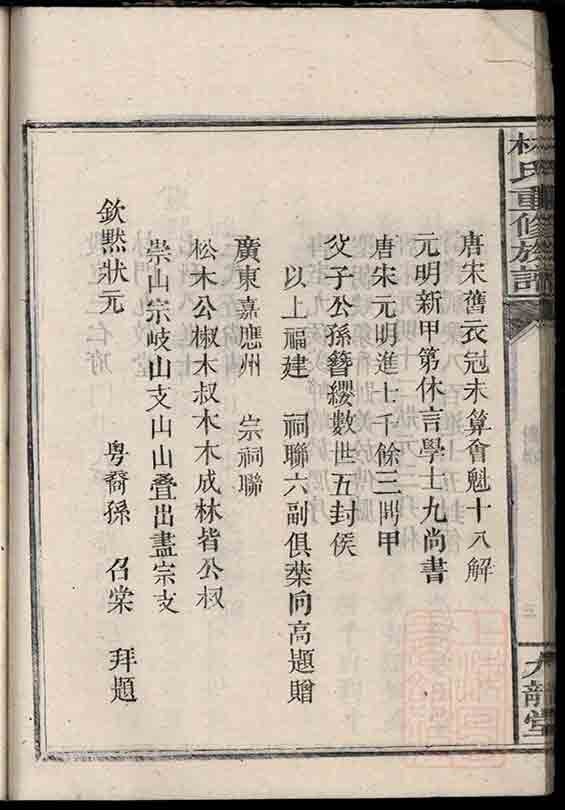 林氏重修族譜
三
九龍堂
唐宋舊衣冠未算會魁十八解
元明新甲第休言學士九尚書
唐宋元明進士千餘三鼎甲
父子公孫簪纓數世五封侯
以上福建 祠聯六副俱葉向高題贈
廣東嘉應州 宗祠聯
松木公椒木叔木木成林皆公叔
崇山宗岐山支山山叠出盡宗支
欽點狀元 粵裔孫 召棠 拜題